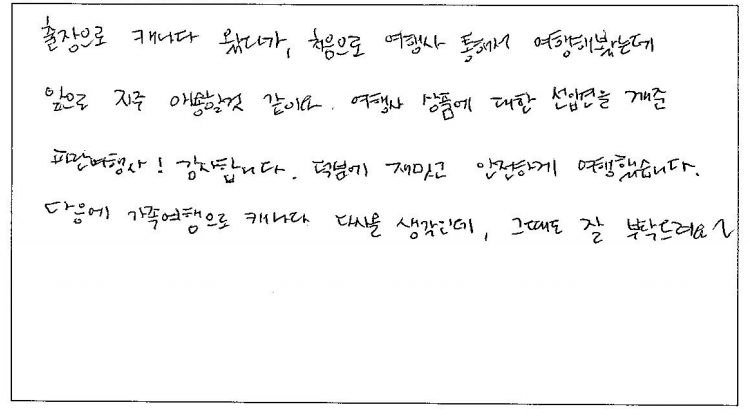 출장으로 캐나다 왔다가, 처음으로 여행사 통해서 여행해봤는데
앞으로 자주 애용할것 같아요. 여행사 상품에 대한 선입견을 깨준
파란여행사! 감사합니다. 덕분에 재밌고 안전하게 여행했습니다.
다음에 가족여행으로 캐나다 다시올 생각인데, 그때도 잘 부탁드려요~